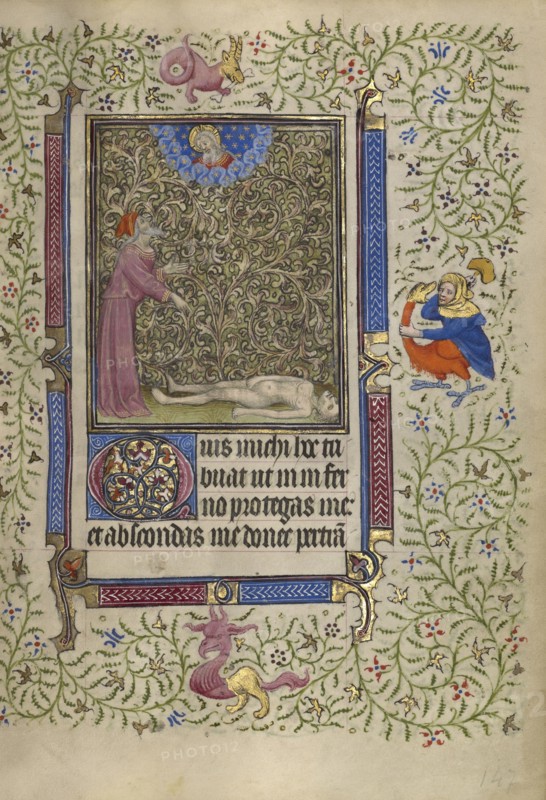 Quis michi hoc tri
buat ut in infer
no protegas me
et abscondas me donec pertrã
147
PHOTO12